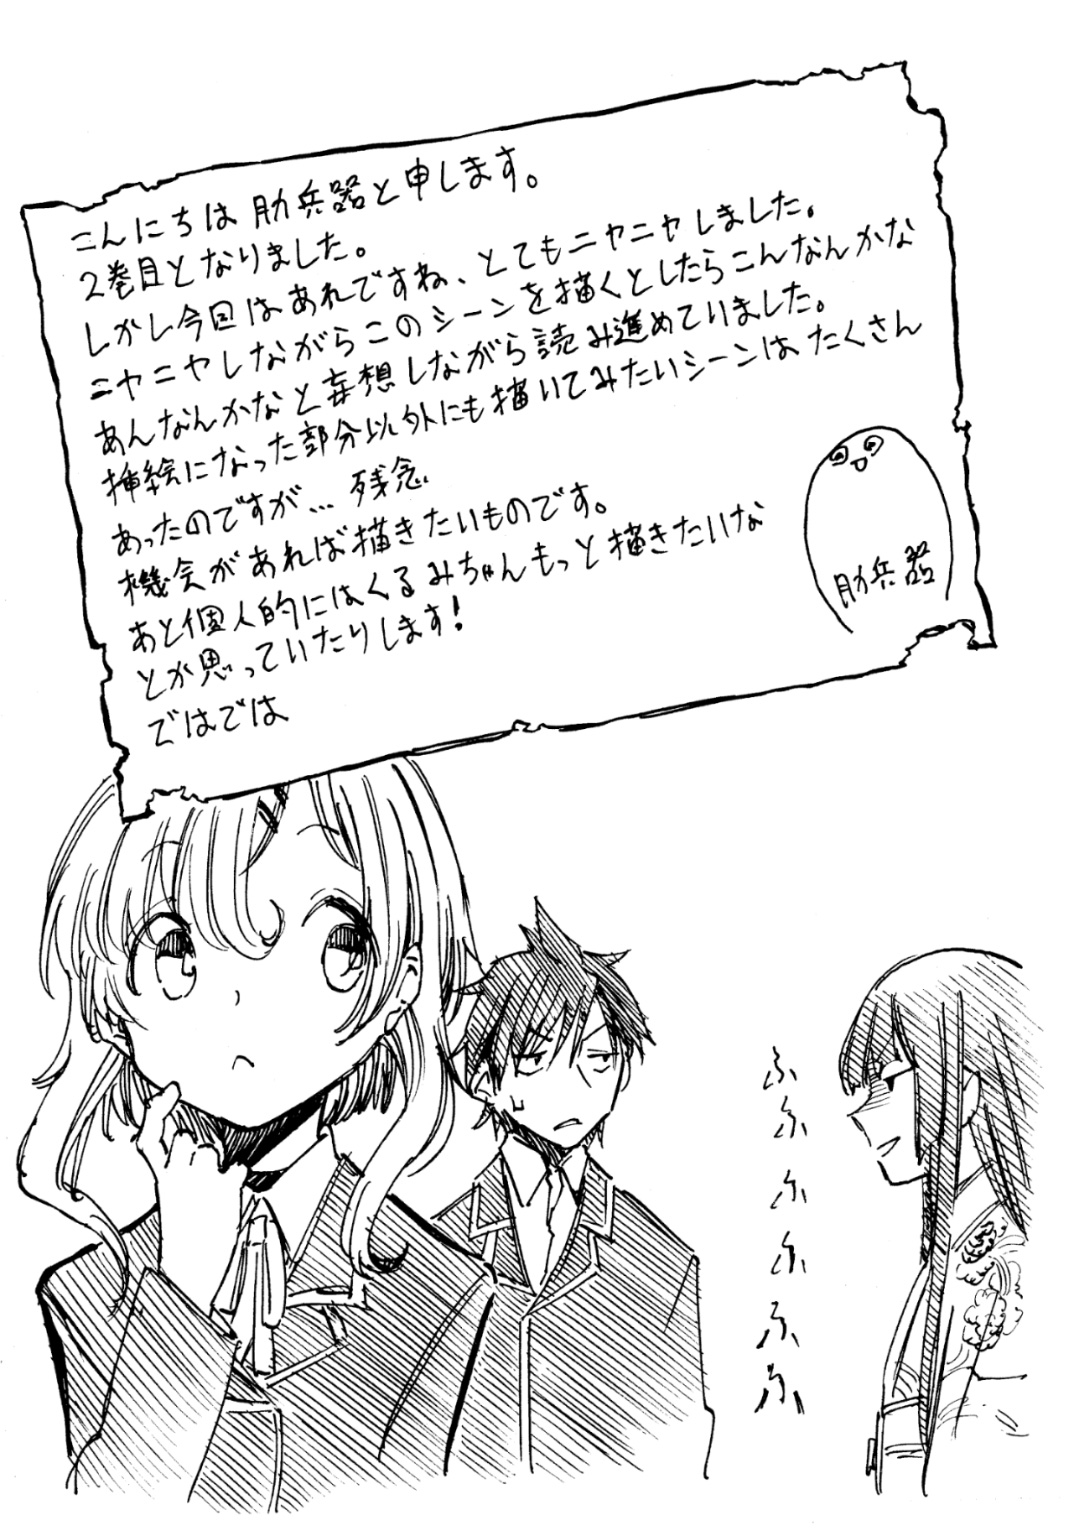 こんにちは肋兵器と申します。
2巻目となりました。
しかし今回はあれですね、とてもニヤニヤしました。
ニヤニヤしながらこのシーンを描くとしたらこんなんかな
あんなんかなと妄想しながら読み進めていました。
挿絵になった部分以外にも描いてみたいシーンはたくさん
あったのですが…残念
機会があれば描きたいものです。
あと個人的にはくるみちゃんもっと描きたいな
とか思っていたりします!
ではでは
肋兵器
ふふふふふふ